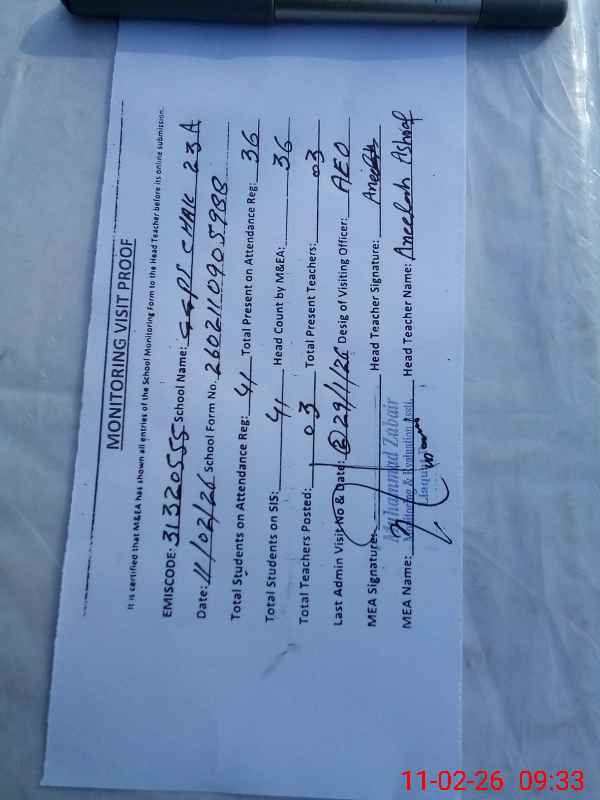 MONITORING VISIT PROOF
It is certified that M&EA has shown all entries of the School Monitoring Form to the Head Teacher before its online submission.
EMISCODE: 31320555 School Name: GGPS CHAK 23A
Date: 11/02/26 School Form No. 260211090598B
Total Students on Attendance Reg: 41 Total Present on Attendance Reg: 36
Total Students on SIS: 41 Head Count by M&EA: 36
Total Teachers Posted: 03 Total Present Teachers: 03
Last Admin Visit No & Date: 29/1/26 Desig of Visiting Officer: AEO
MEA Signature: Head Teacher Signature: Aneelah
MEA Name: Head Teacher Name: Aneelah Ashraf
Muhammad Zubair
Monitoring & Evaluation Asstt.
11-02-26 09:33